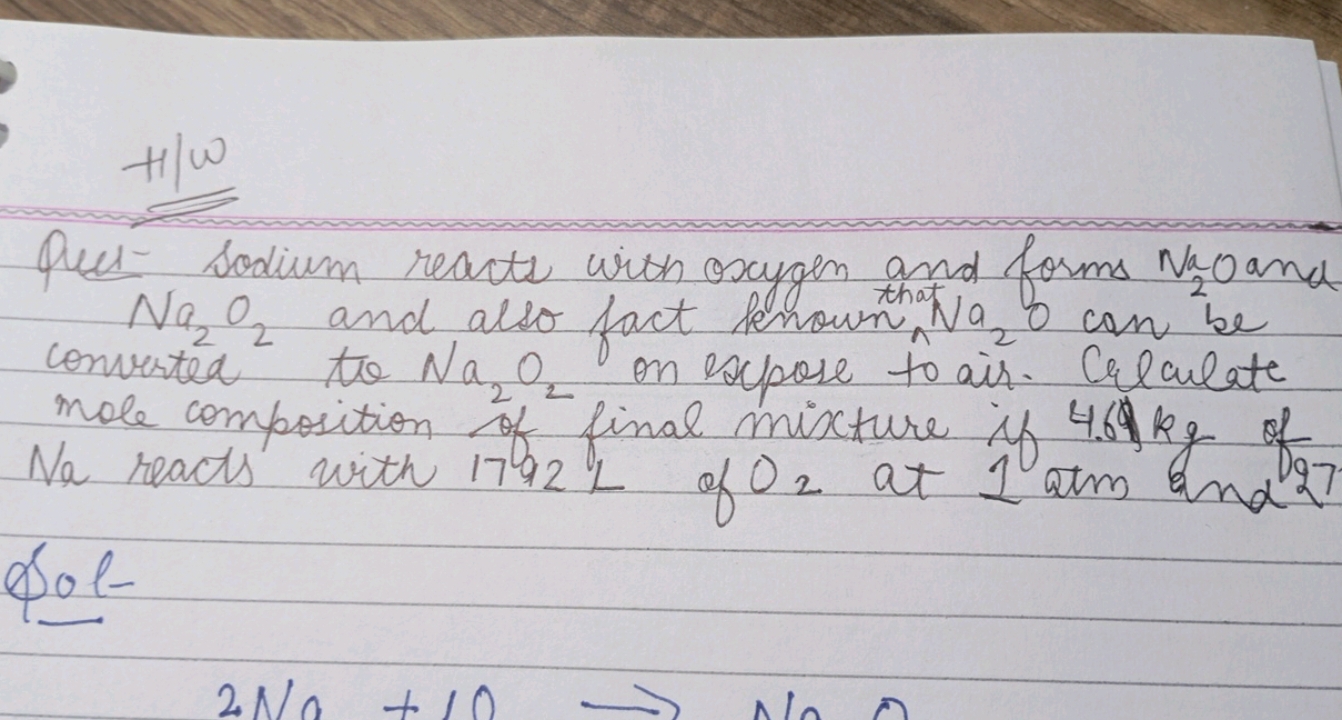 H/W
Ques- Sodium reacts with oxygen and forms Na2O and
Na2O2 and also fact known that Na2O can be
converted to Na2O2 on expose to air. Calculate
mole composition of final mixture if 4.6 kg of
Na reacts with 1792 L of O2 at 1 atm and 27
Sol-
2Na + O →